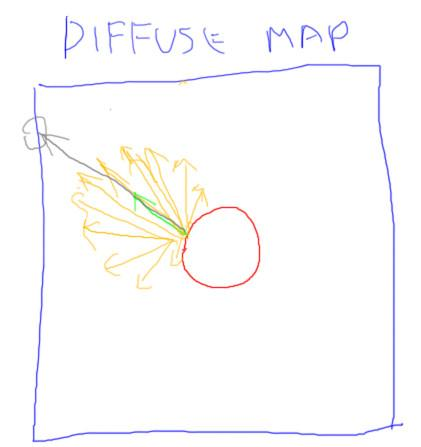 DIFFUSE MAP